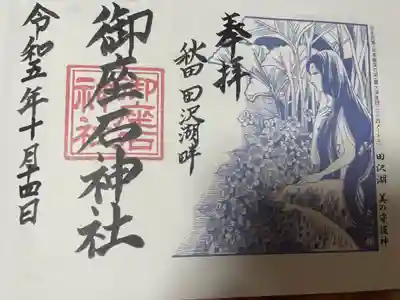 奉拝
秋田 田沢湖畔
御座石神社
御座石
神社
令和五年十月十四日
田沢湖 美の守護神